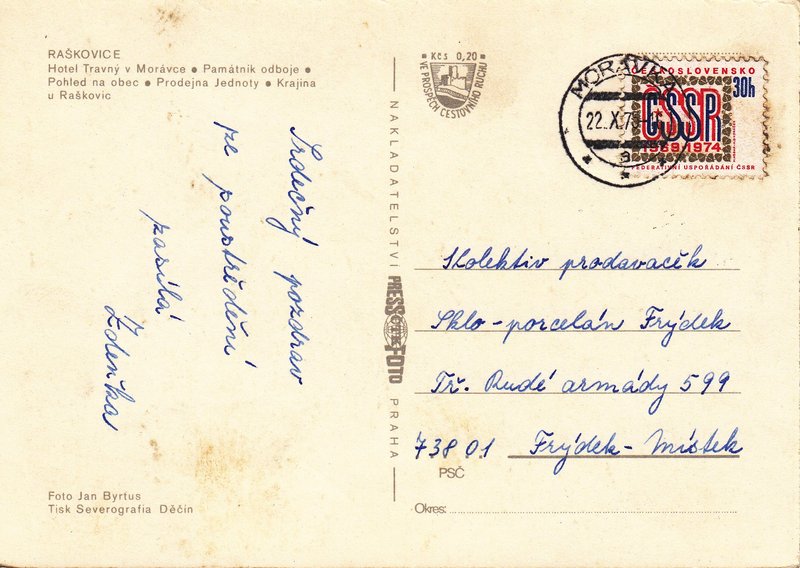 RAŠKOVICE
Hotel Travný v Morávce ● Památník odboje ●
Pohled na obec ● Prodejna Jednoty ● Krajina
u Raškovic
Srdečný pozdrav
ze soustředění
zasílá
Zdeňka
Foto Jan Byrtus
Tisk Severografia Děčín
Kčs 0,20
VE PROSPĚCH CESTOVNÍHO RUCHU
NAKLADATELSTVÍ
PRESSFOTO
ČTK
PRAHA
MORÁVKA
22.X.7
a
ČESKOSLOVENSKO
30h
ČSSR
1969-1974
FEDERATIVNÍ USPOŘÁDÁNÍ ČSSR
Kolektiv prodavaček
Sklo-porcelán Frýdek
Tř. Rudé armády 599
738 01 Frýdek-Místek
PSČ
Okres: